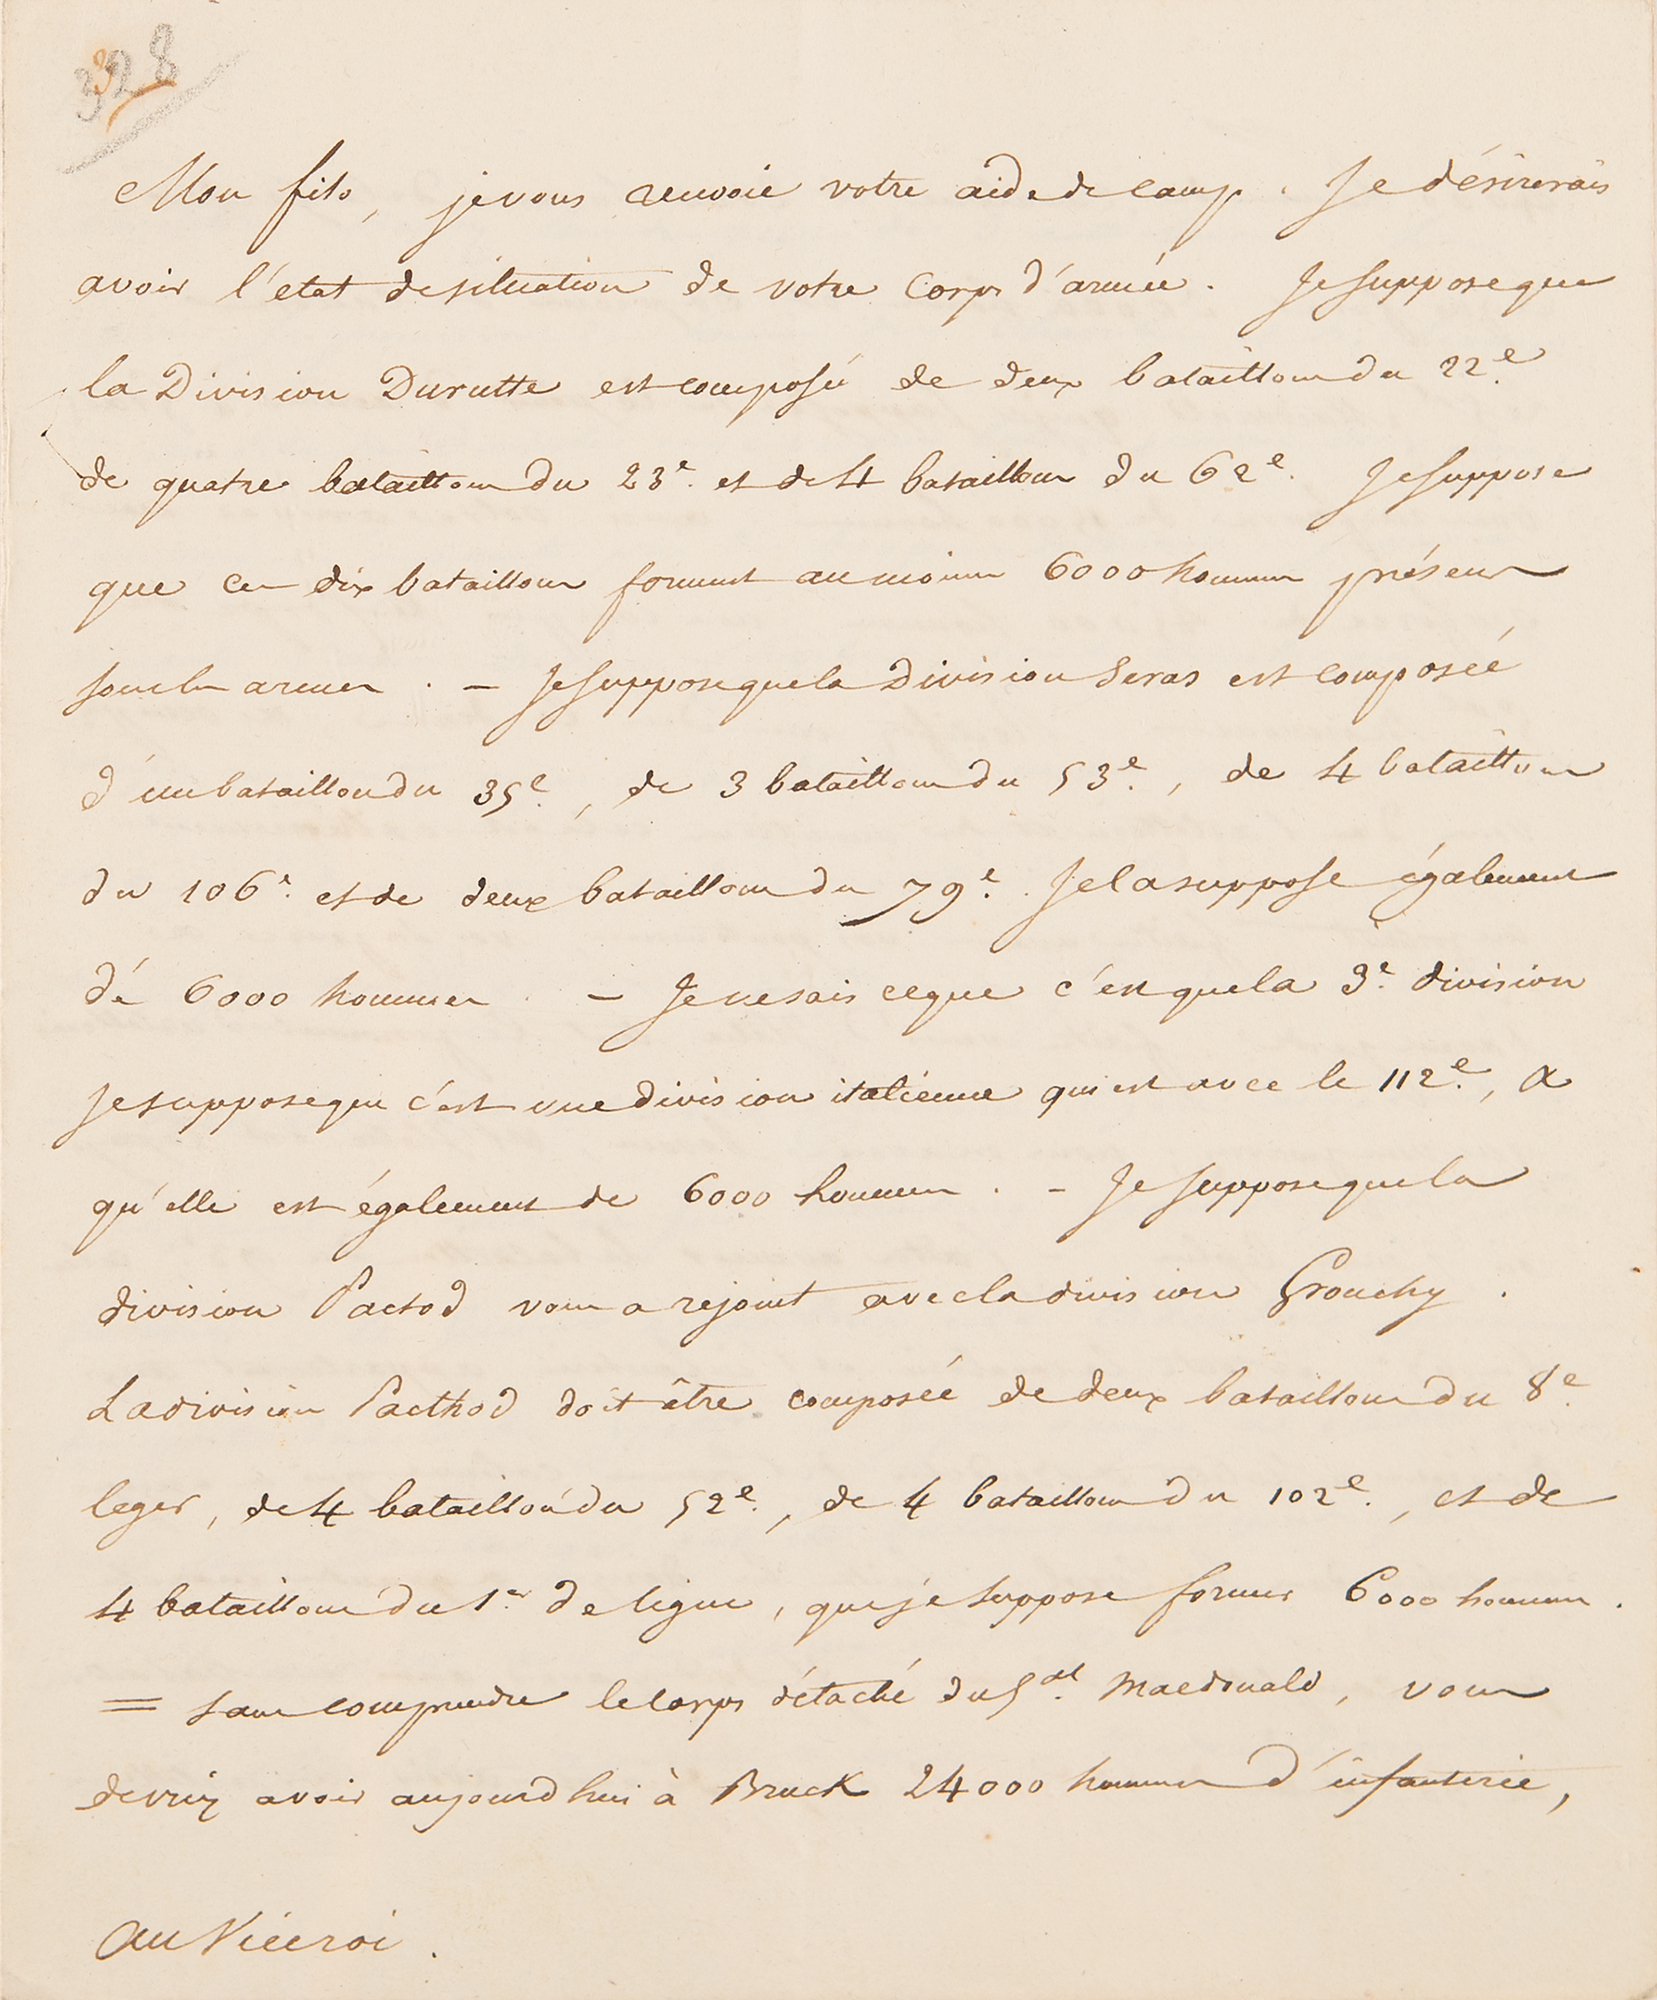 328
Mon fils, je vous renvoie votre aide de camp. Je désirerais
avoir l'état de situation de votre corps d'armée. Je suppose que
la Division Durutte est composée de deux bataillons du 22e.
de quatre bataillons du 23e. et de 4 bataillons du 62e. Je suppose
que ces dix bataillons forment au moins 6000 hommes présens
sous les armes. — Je suppose que la Division Seras est composée
d'un bataillon du 35e., de 3 bataillons du 53e., de 4 bataillons
du 106e. et de deux bataillons du 79e. Je la suppose également
de 6000 hommes. — Je ne sais ce que c'est que la 3e. division
je suppose que c'est une division italienne qui est avec le 112e., &
qu'elle est également de 6000 hommes. — Je suppose que la
division Pactod vous a rejoint avec la division Grouchy.
La division Pacthod doit être composée de deux bataillons du 8e.
leger, de 4 bataillons du 52e., de 4 bataillons du 102e., et de
4 bataillons du 1er. de ligne, que je suppose former 6000 hommes.
= sans comprendre le corps détaché du Gal. Macdonald, vous
devriez avoir aujourd'hui à Bruck 24000 hommes d'infanterie,
au Viceroi.